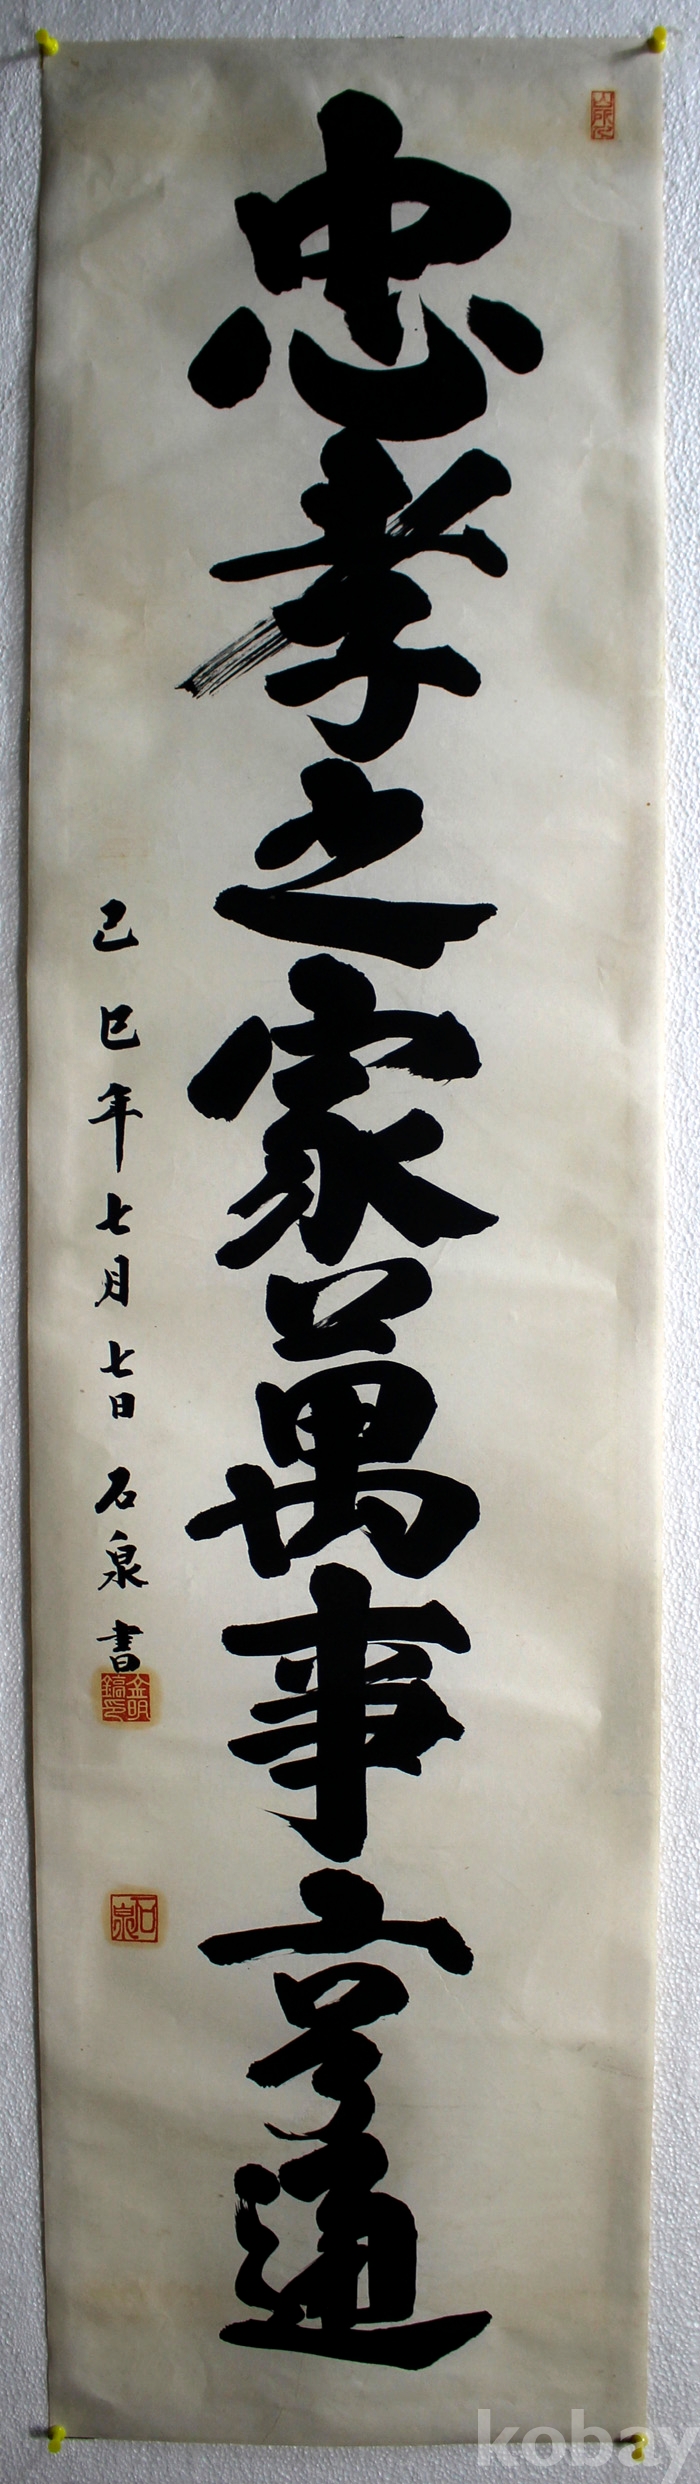 忠孝之家萬事亨通
己巳年七月七日 石泉 書
石泉
kobay